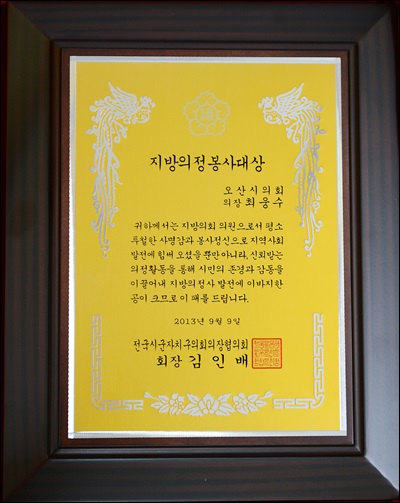 지방의정봉사대상
오산시의회
의장 최웅수
귀하께서는 지방의회 의원으로서 평소
투철한 사명감과 봉사정신으로 지역사회
발전에 힘써 오셨을 뿐만아니라, 신뢰받는
의정활동을 통해 시민의 존경과 감동을
이끌어내 지방의정사 발전에 이바지한
공이 크므로 이 패를 드립니다.
2013년 9월 9일
전국시군자치구의회의장협의회
회장 김인배